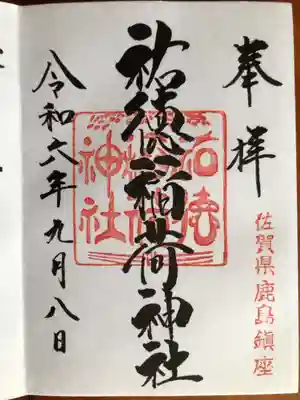 奉拝
佐賀県鹿島鎮座
祐徳稲荷神社
祐徳稲荷神社
令和六年九月八日